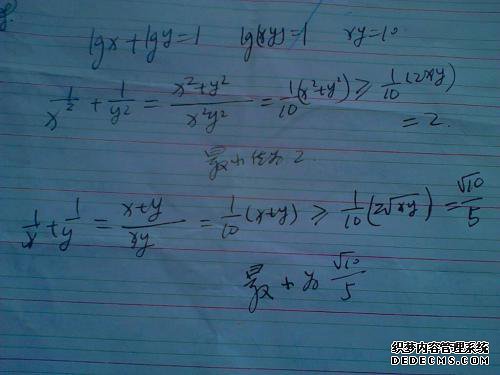 lgx+lgy=1 lg(xy)=1 xy=10
1/x²+1/y²=(x²+y²)/(x²y²)=1/10(x²+y²)≥1/10(2xy)
=2.
最小值为2.
1/x+1/y=(x+y)/(xy)=1/10(x+y)≥1/10(2√xy)=√10/5
最小为√10/5
织梦内容管理系统
DEDECMS.COM